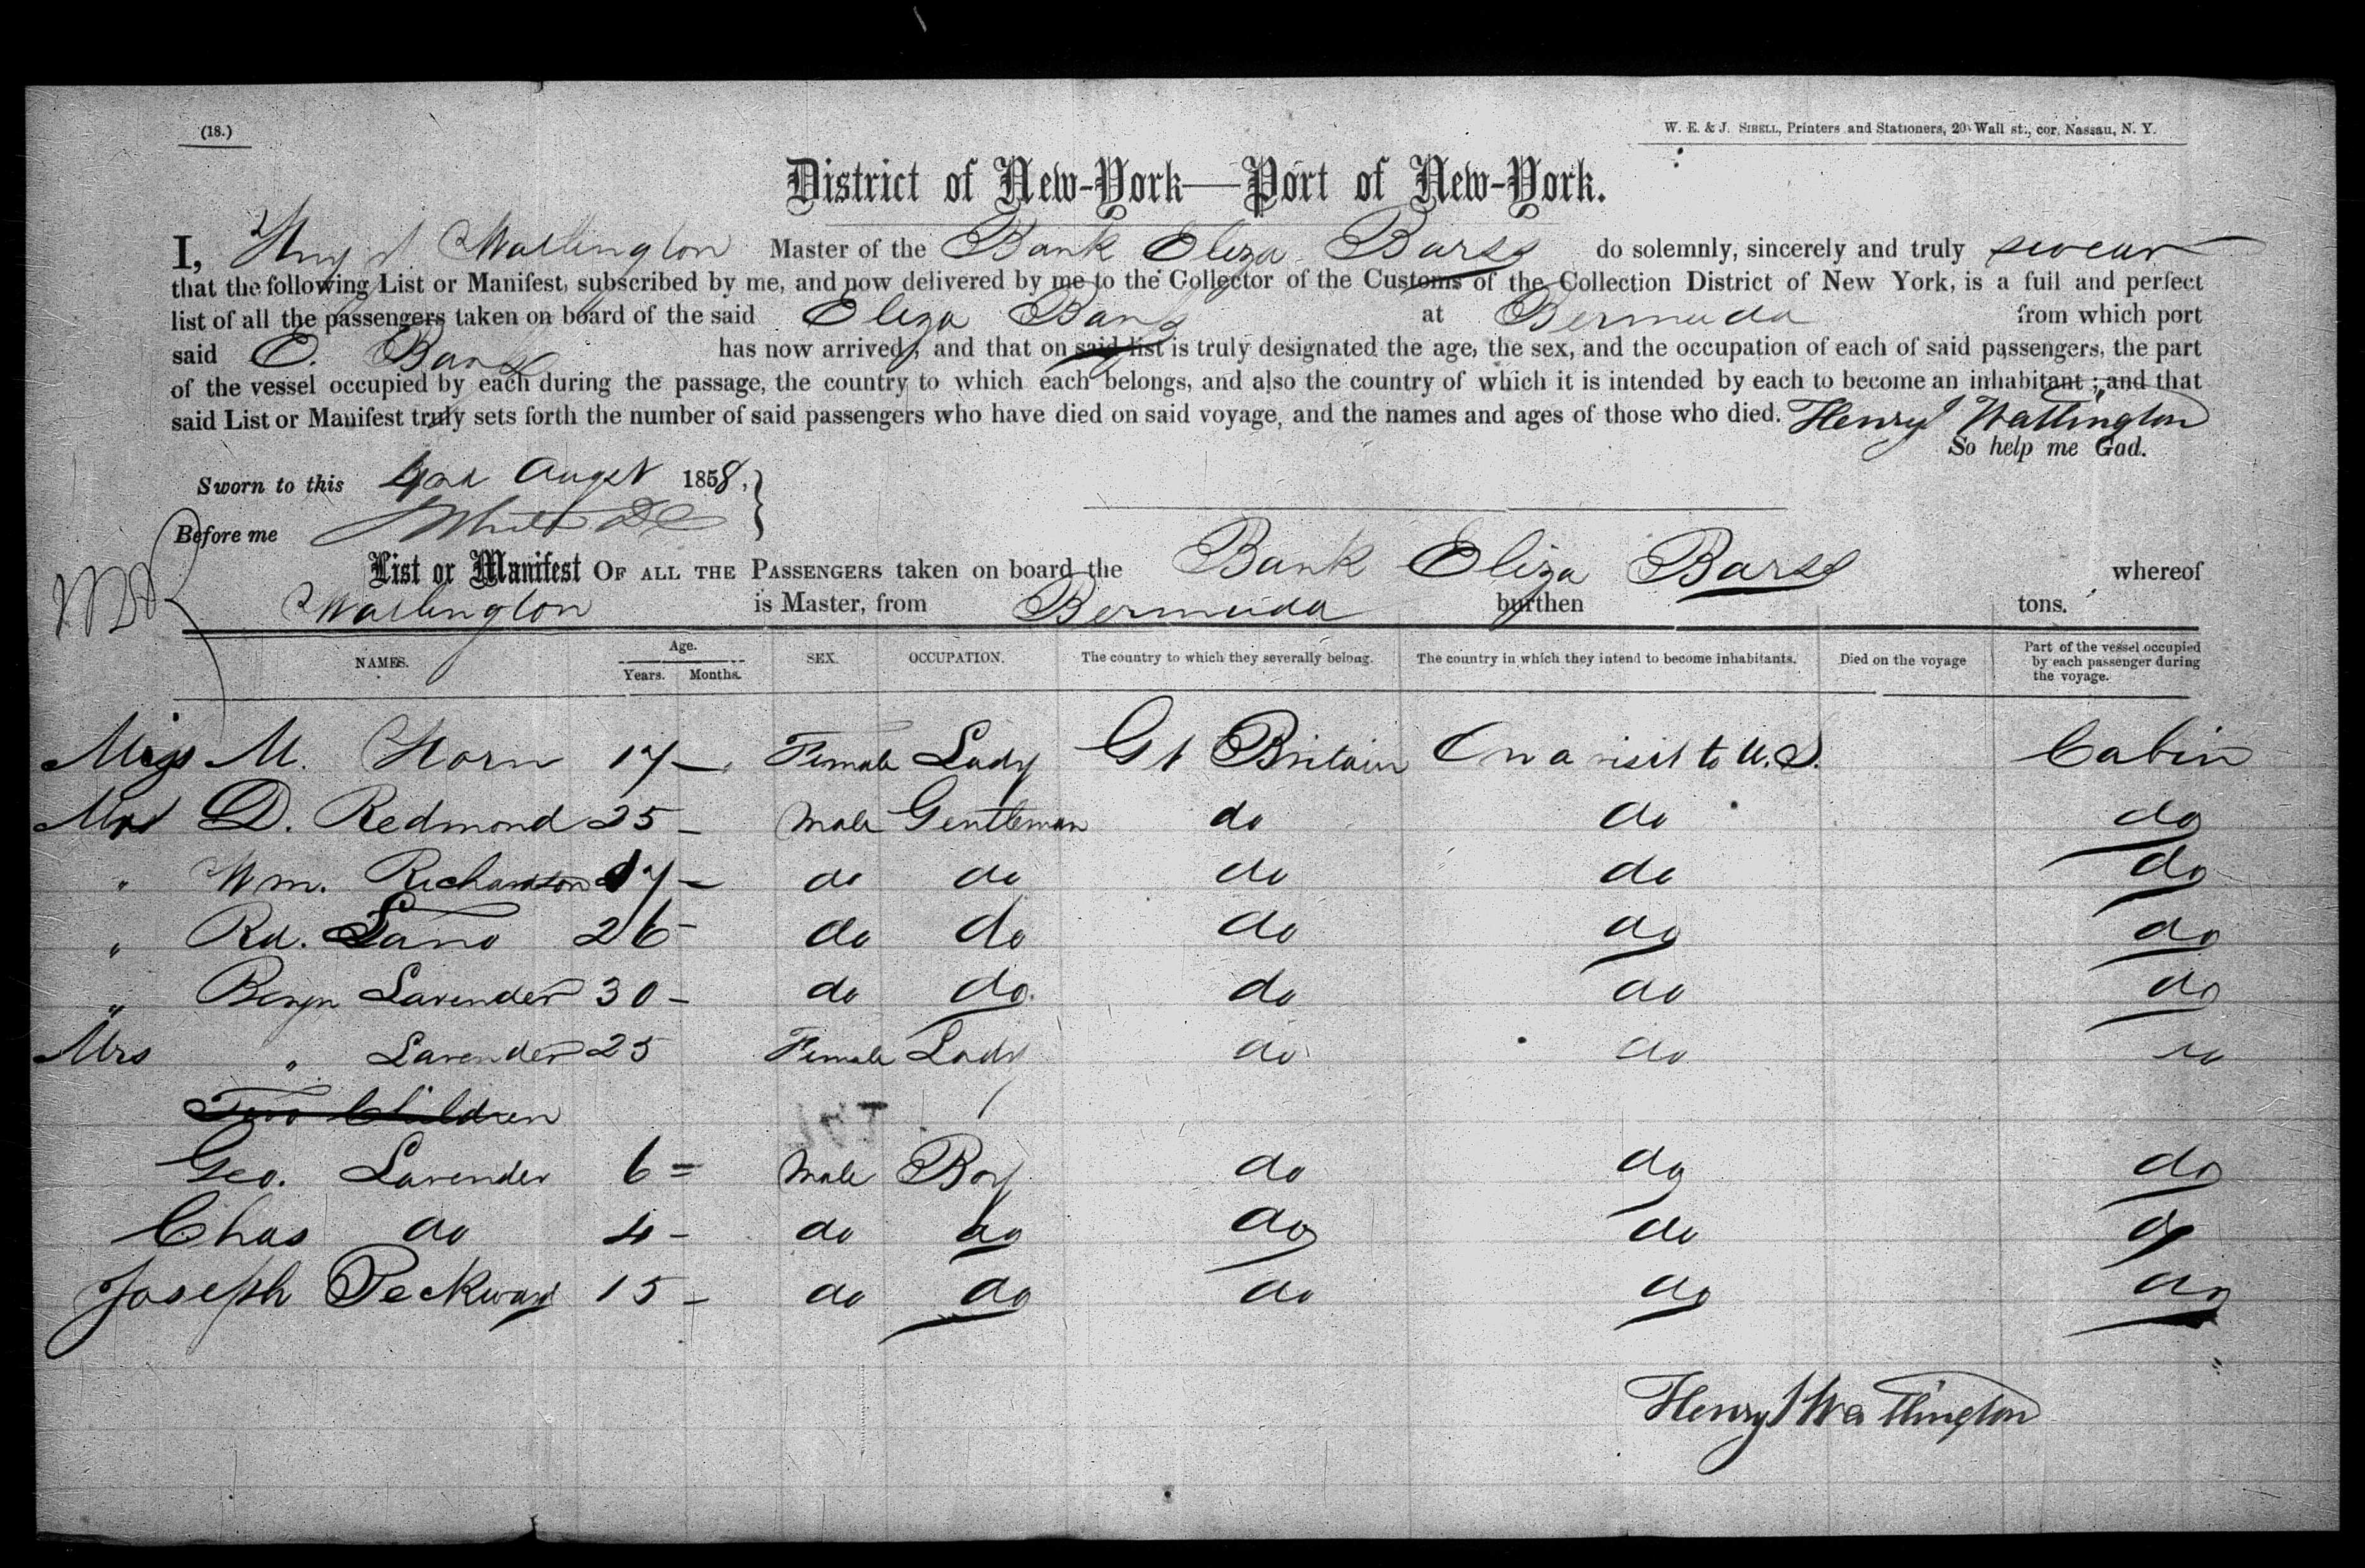 (18.)
W. E. & J. SIBELL, Printers and Stationers, 20 Wall st., cor. Nassau, N. Y.
District of New-York—Port of New-York.
I, Watlington Master of the Bark Eliza Barss do solemnly, sincerely and truly swear
that the following List or Manifest, subscribed by me, and now delivered by me to the Collector of the Customs of the Collection District of New York, is a full and perfect
list of all the passengers taken on board of the said Eliza Barss at Bermuda from which port
said E. Barss has now arrived; and that on said list is truly designated the age, the sex, and the occupation of each of said passengers, the part
of the vessel occupied by each during the passage, the country to which each belongs, and also the country of which it is intended by each to become an inhabitant; and that
said List or Manifest truly sets forth the number of said passengers who have died on said voyage, and the names and ages of those who died. Henry J Watlington
So help me God.
Sworn to this Augst 1858,
Before me
List or Manifest OF ALL THE PASSENGERS taken on board the Bark Eliza Barss whereof
Watlington is Master, from Bermuda burthen tons.
NAMES. Age. Years. Months. SEX. OCCUPATION. The country to which they severally belong. The country in which they intend to become inhabitants. Died on the voyage Part of the vessel occupied by each passenger during the voyage.
Miss M. Horn 17 – Female Lady Gt Britain On a visit to U.S. Cabin
D. Redmond 25 – Male Gentleman do do do
" Wm. Richardson 17 – do do do do do
" Rd. 26 – do do do do do
" Benjn Lavender 30 – do do. do do do
Mrs " Lavender 25 Female Lady do do do
Two Children
Geo. Lavender 6 = Male Boy do do do
Chas do 4 – do do do do do
Joseph 15 – do do do do do
Henry J Watlington